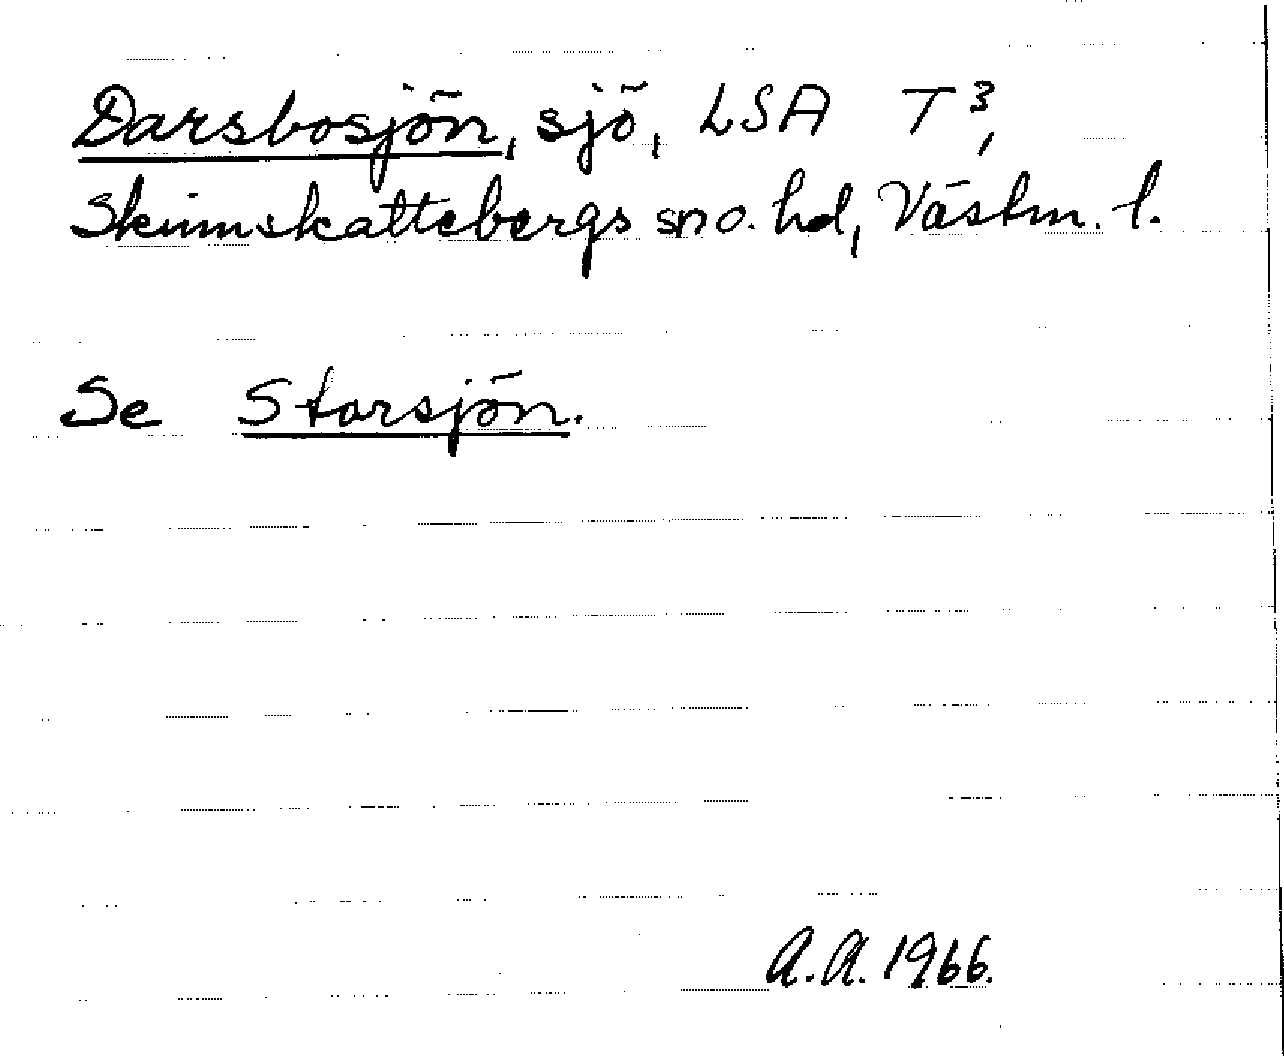 Darsbosjön, sjö, LSA T³,
Skinnskattebergs sn o. hd, Västm. l.
Se Storsjön.
A.A. 1966.